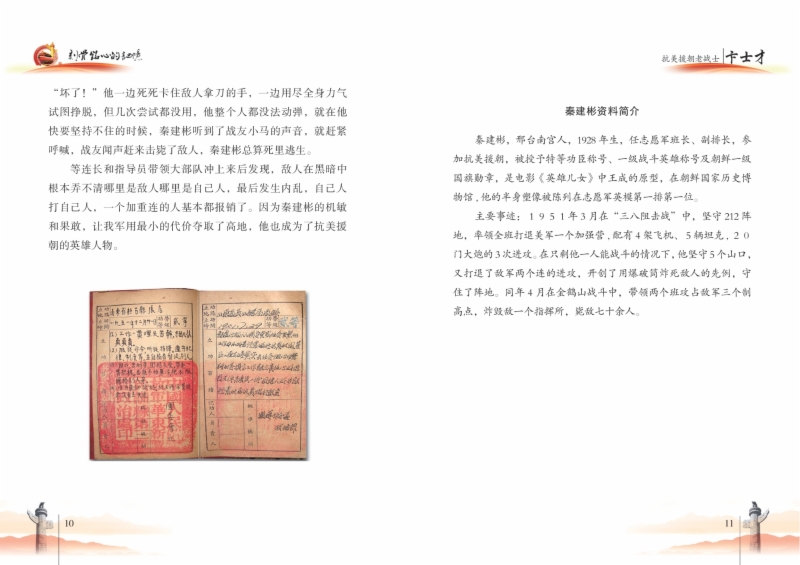 刻骨铭心的记忆
“坏了！”他一边死死卡住敌人拿刀的手，一边用尽全身力气
试图挣脱，但几次尝试都没用，他整个人都没法动弹，就在他
快要坚持不住的时候，秦建彬听到了战友小马的声音，就赶紧
呼喊，战友闻声赶来击毙了敌人，秦建彬总算死里逃生。
等连长和指导员带领大部队冲上来后发现，敌人在黑暗中
根本弄不清哪里是敌人哪里是自己人，最后发生内乱，自己人
打自己人，一个加重连的人基本都报销了。因为秦建彬的机敏
和果敢，让我军用最小的代价夺取了高地，他也成为了抗美援
朝的英雄人物。
10
抗美援朝老战士 卞士才
秦建彬资料简介
秦建彬，邢台南宫人，1928 年生，任志愿军班长、副排长，参
加抗美援朝，被授予特等功臣称号、一级战斗英雄称号及朝鲜一级
国旗勋章，是电影《英雄儿女》中王成的原型，在朝鲜国家历史博
物馆，他的半身塑像被陈列在志愿军英模第一排第一位。
主要事迹：１９５１年３月在“三八阻击战”中，坚守 212 阵
地，率领全班打退美军一个加强营，配有４架飞机、５辆坦克，２０
门大炮的３次进攻。在只剩他一人能战斗的情况下，他坚守５个山口，
又打退了敌军两个连的进攻，开创了用爆破筒炸死敌人的先例，守
住了阵地。同年４月在金鹤山战斗中，带领两个班攻占敌军三个制
高点，炸毁敌一个指挥所，毙敌七十余人。
11